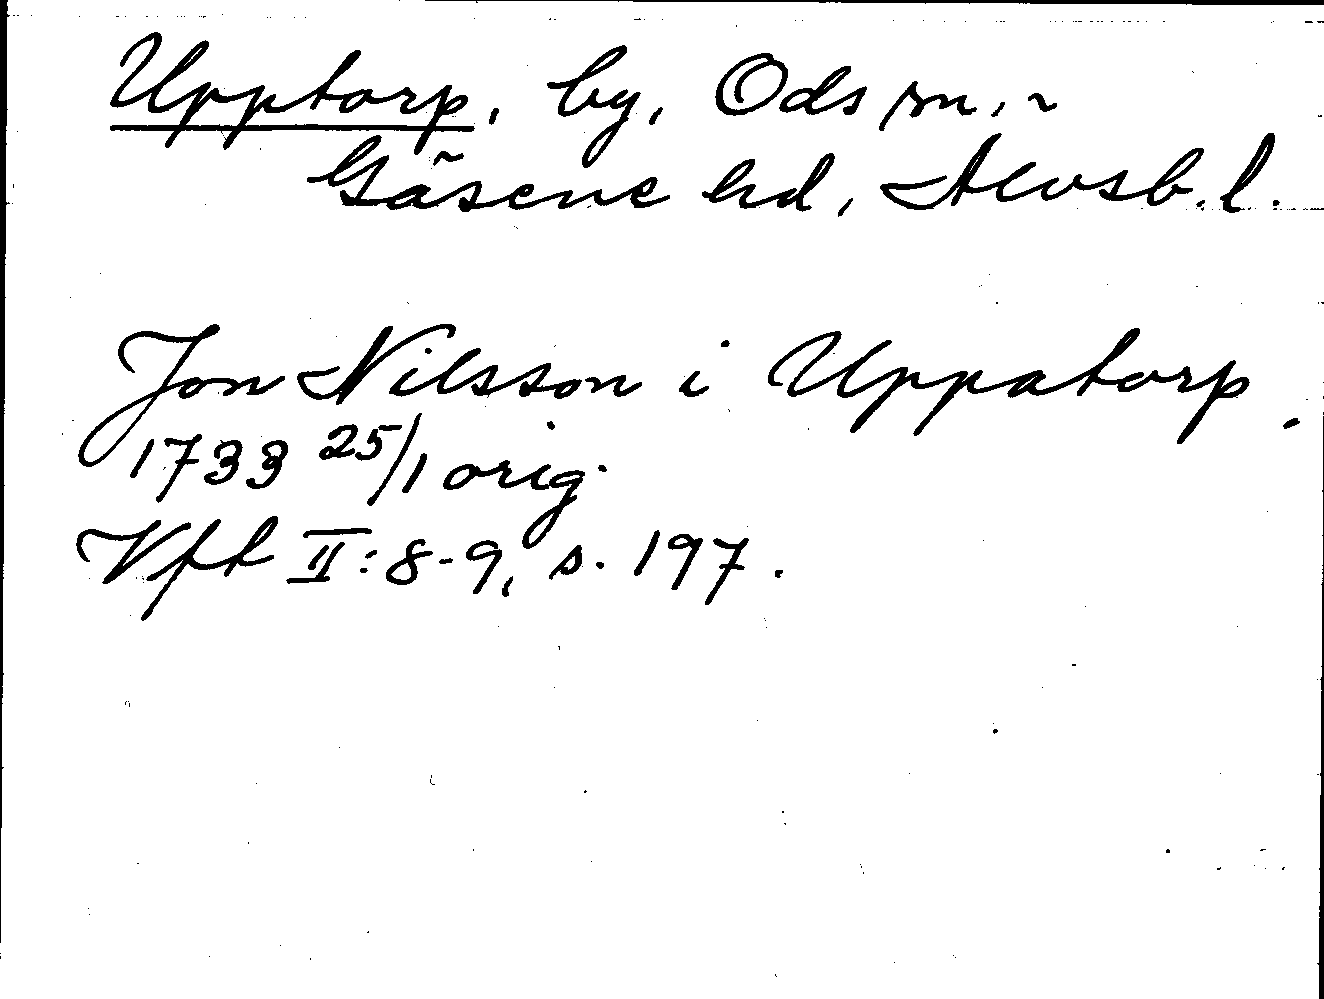 Upptorp, by, Ods sn,
Gäsene hd, Älvsb. l.
Jon Nilsson i Uppatorp,
1733 25/1 orig.
Vft II:8-9, s. 197.